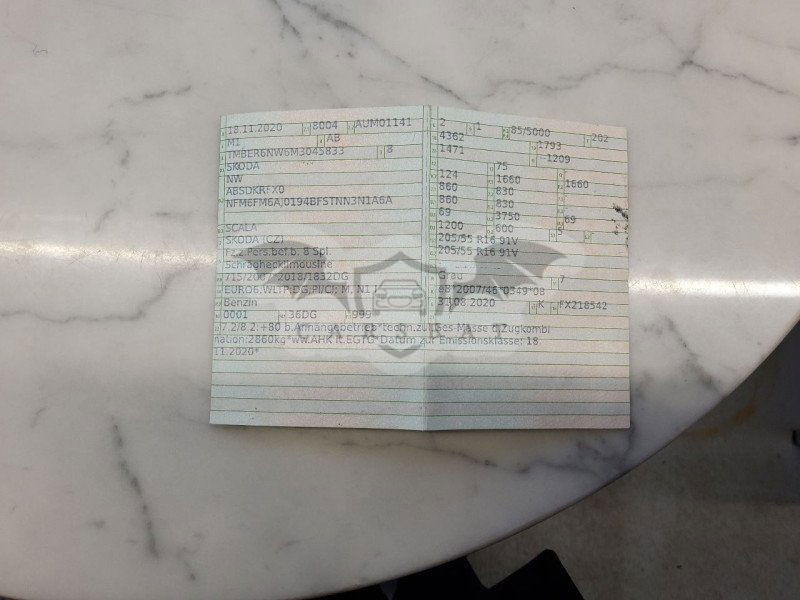 18.11.2020 8004 AUM01141
M1 AB
TMBER6NW6M3045833 8
SKODA
NW
ABSDKRFX0
NFM6FM6A,0194BFSTNN3N1A6A
SCALA
SKODA (CZ)
Fz.z.Pers.bef.b. 8 Spl.
Schräghecklimousine
715/2007*2018/1832DG
EURO6,WLTP;DG;PI/CI; M, N1 I
Benzin
0001 36DG 999
2 1 85/5000 202
4362 1793
1471 1209
75
124 1660 1660
860 830
860 830
69 3750 69
1200 600
205/55 R16 91V
205/55 R16 91V
Grau 7
e8*2007/46*0349*08
31.08.2020 K FX218542
7.2/8.2:+80 b.Anhängebetrieb*techn.zul.Ges-Masse d.Zugkombi
nation:2860kg*ww.AHK lt.EGTG*Datum zur Emissionsklasse: 18
11.2020*